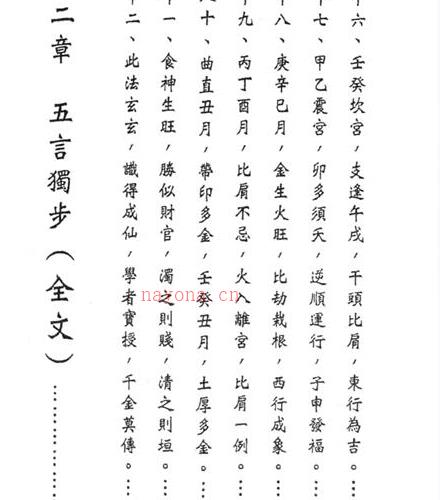 十六、壬癸坎宮，支逢午戌，干頭比肩，東行為吉。…
十七、甲乙震宮，卯多須夭，逆順運行，子申發福。…
十八、庚辛巳月，金生火旺，比劫栽根，西行成象。…
十九、丙丁酉月，比肩不忌，火入離宮，比肩一例。…
十、曲直丑月，帶印多金，壬癸丑月，土厚多金。…
一、食神生旺，勝似財官，濁之則賤，清之則垣。…
二、此法玄玄，識得成仙，學者實授，千金莫傳。…
二章　五言獨步（全文）…………
nayona.cn